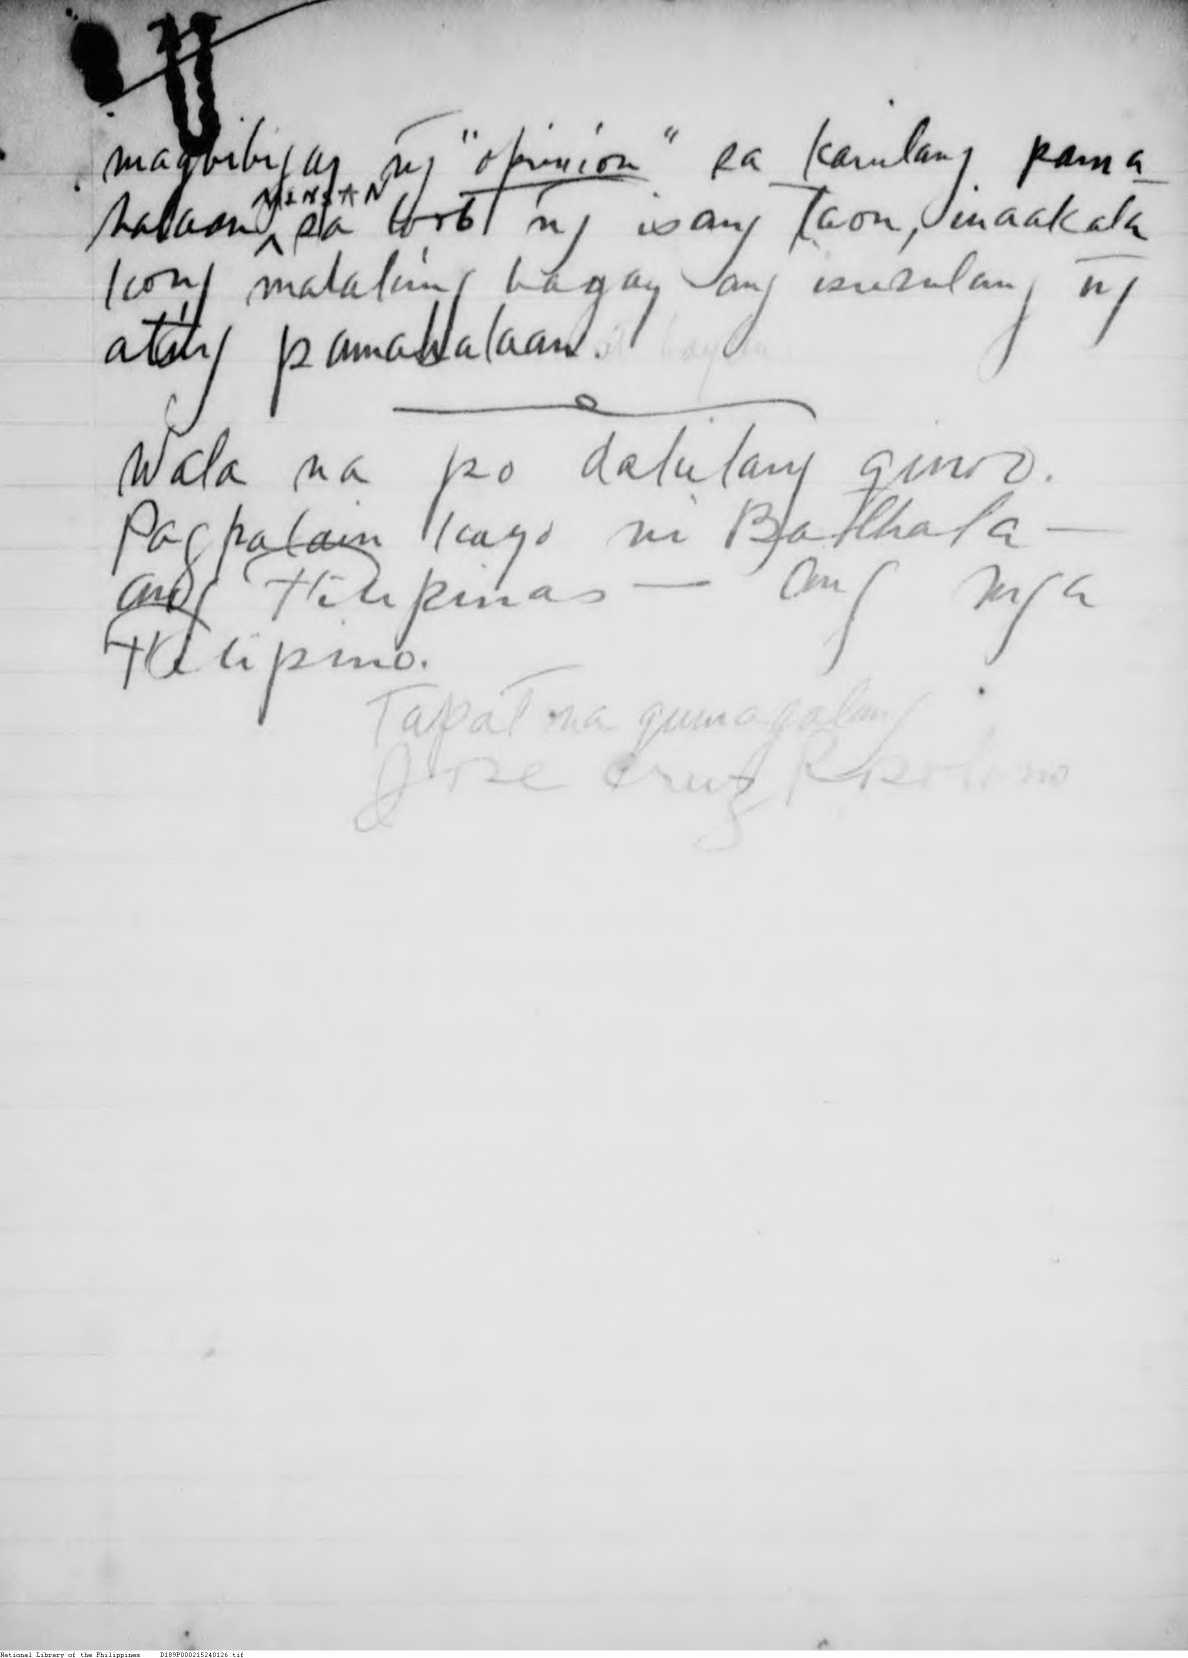 magbibigay ng̃ "opinion" sa kanilang pama
halaan MINSAN sa loob ng̃ isang taon, inaakala
kong malaking bagay ang isusulang ng̃
ating pamahalaan.
Wala na po dakilang ginoo.
Pagpalain kayo ni Bathala —
ang Filipinas — ang mga
Filipino.
Tapat na gumagalang
Jose Cruz
National Library of the Philippines D189P000215240126.tif